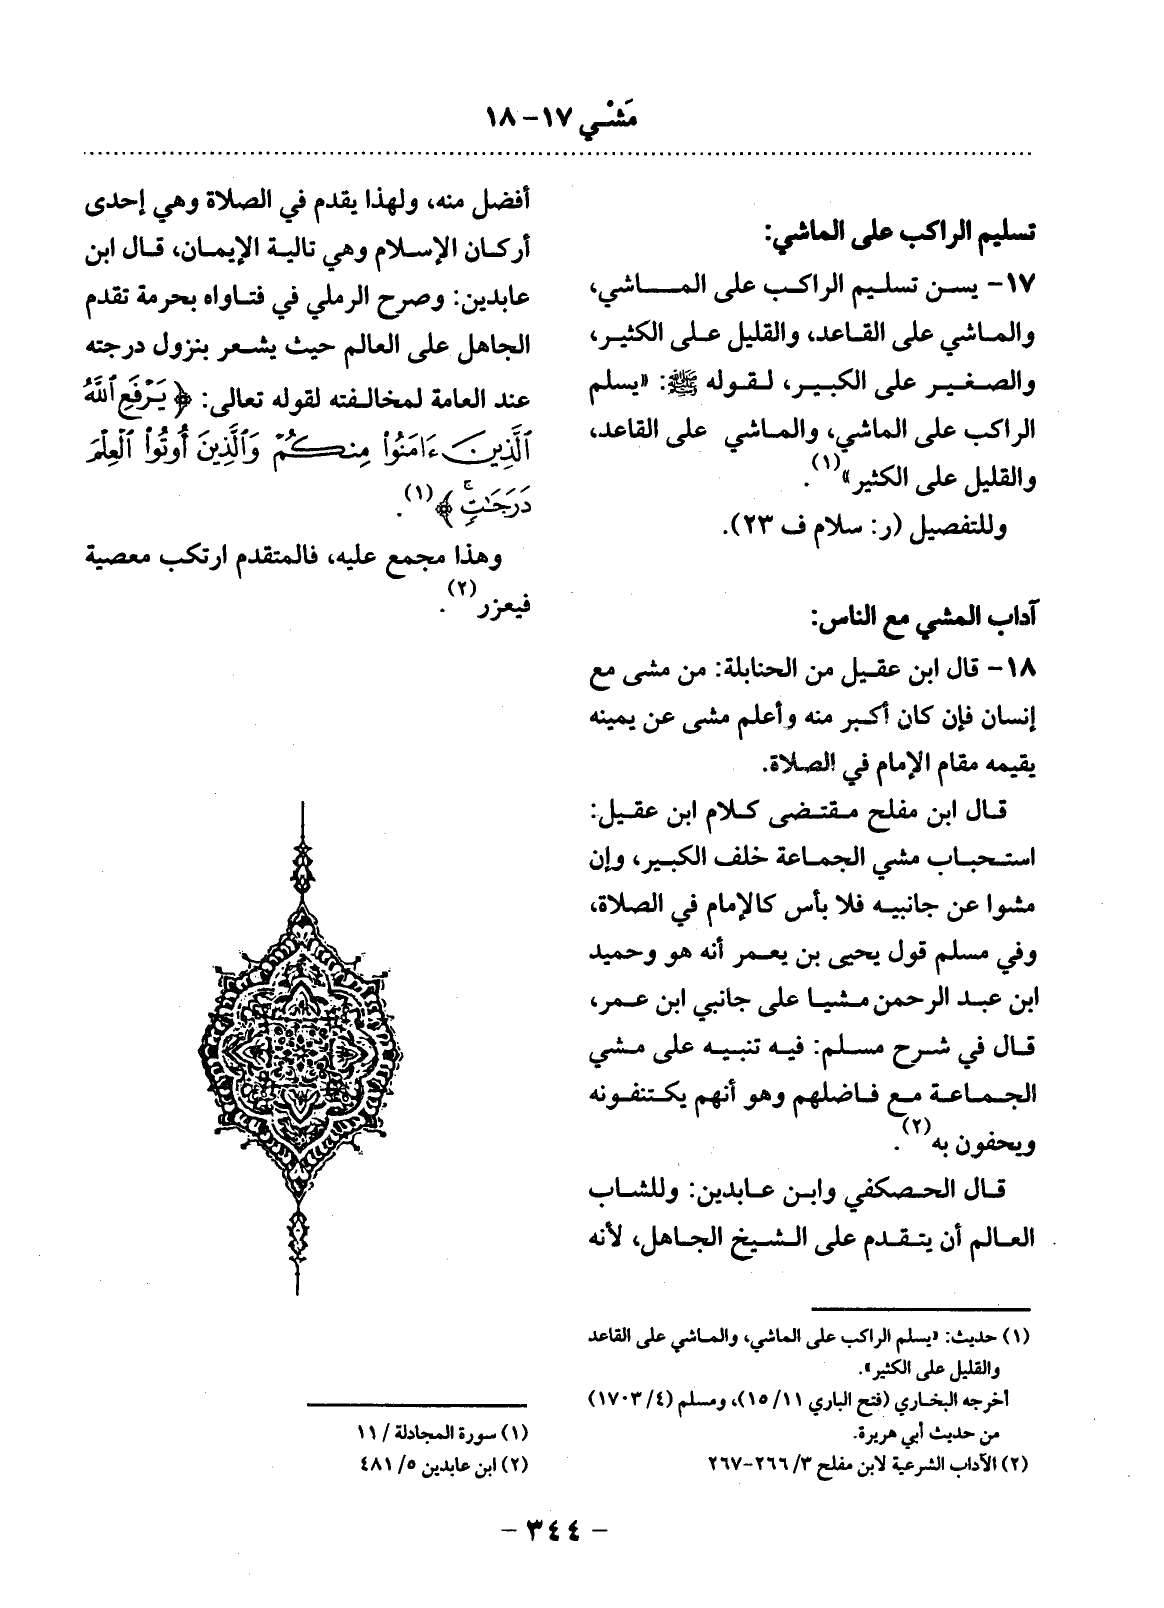 مَشْي ١٧-١٨
تسليم الراكب على الماشي:
١٧- يسن تسليم الراكب على الماشي،
والماشي على القاعد، والقليل على الكثير،
والصغير على الكبير، لقوله ﷺ: «يسلم
الراكب على الماشي، والماشي على القاعد،
والقليل على الكثير»(١).
وللتفصيل (ر: سلام ف ٢٣).
آداب المشي مع الناس:
١٨- قال ابن عقيل من الحنابلة: من مشى مع
إنسان فإن كان أكبر منه وأعلم مشى عن يمينه
يقيمه مقام الإمام في الصلاة.
قال ابن مفلح مقتضى كلام ابن عقيل:
استحباب مشي الجماعة خلف الكبير، وإن
مشوا عن جانبيه فلا بأس كالإمام في الصلاة،
وفي مسلم قول يحيى بن يعمر أنه هو وحميد
ابن عبد الرحمن مشيا على جانبي ابن عمر،
قال في شرح مسلم: فيه تنبيه على مشي
الجماعة مع فاضلهم وهو أنهم يكتنفونه
ويحفون به(٢).
قال الحصكفي وابن عابدين: وللشاب
العالم أن يتقدم على الشيخ الجاهل، لأنه
(١) حديث: «يسلم الراكب على الماشي، والماشي على القاعد
والقليل على الكثير».
أخرجه البخاري (فتح الباري ١١/ ١٥)، ومسلم (٤/ ١٧٠٣)
من حديث أبي هريرة.
(٢) الآداب الشرعية لابن مفلح ٣/ ٢٦٦-٢٦٧
أفضل منه، ولهذا يقدم في الصلاة وهي إحدى
أركان الإسلام وهي تالية الإيمان، قال ابن
عابدين: وصرح الرملي في فتاواه بحرمة تقدم
الجاهل على العالم حيث يشعر بنزول درجته
عند العامة لمخالفته لقوله تعالى: ﴿يَرْفَعِ ٱللَّهُ
ٱلَّذِينَ ءَامَنُوا۟ مِنكُمْ وَٱلَّذِينَ أُوتُوا۟ ٱلْعِلْمَ
دَرَجَـٰتٍۚ﴾(١).
وهذا مجمع عليه، فالمتقدم ارتكب معصية
فيعزر(٢).
(١) سورة المجادلة / ١١
(٢) ابن عابدين ٥/ ٤٨١
- ٣٤٤ -